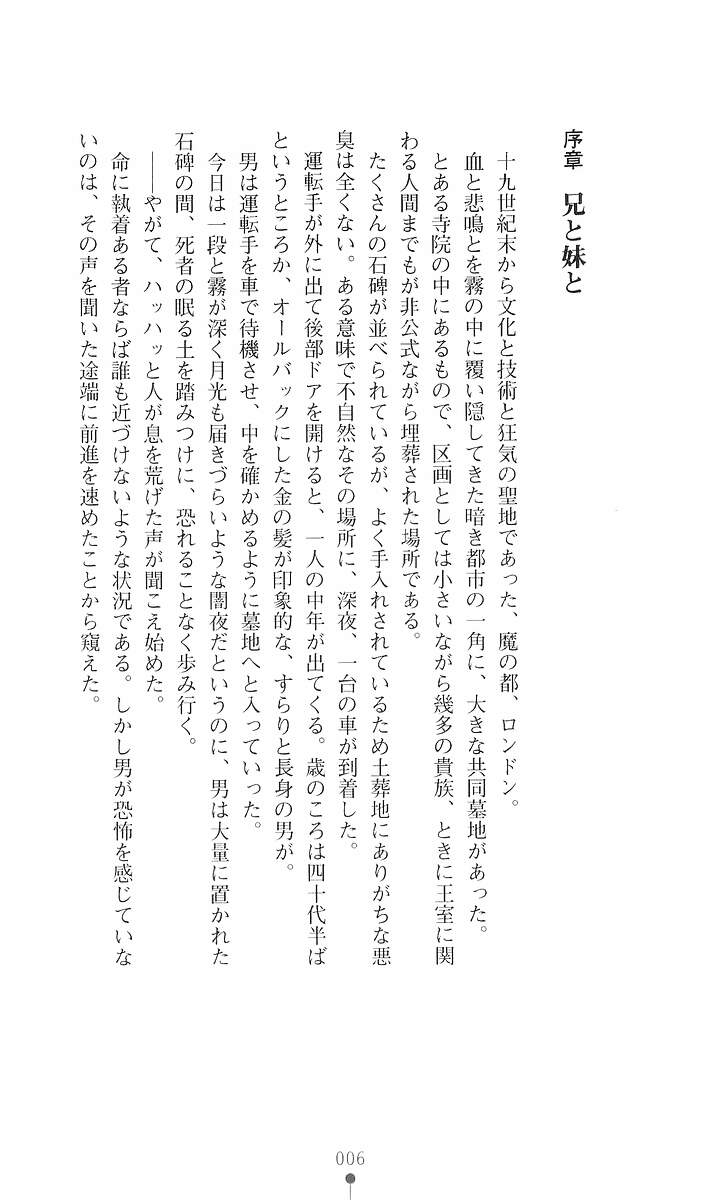 序章　兄と妹と
十九世紀末から文化と技術と狂気の聖地であった、魔の都、ロンドン。
血と悲鳴とを霧の中に覆い隠してきた暗き都市の一角に、大きな共同墓地があった。
とある寺院の中にあるもので、区画としては小さいながら幾多の貴族、ときに王室に関
わる人間までもが非公式ながら埋葬された場所である。
たくさんの石碑が並べられているが、よく手入れされているため土葬地にありがちな悪
臭は全くない。ある意味で不自然なその場所に、深夜、一台の車が到着した。
運転手が外に出て後部ドアを開けると、一人の中年が出てくる。歳のころは四十代半ば
というところか、オールバックにした金の髪が印象的な、すらりと長身の男が。
男は運転手を車で待機させ、中を確かめるように墓地へと入っていった。
今日は一段と霧が深く月光も届きづらいような闇夜だというのに、男は大量に置かれた
石碑の間、死者の眠る土を踏みつけに、恐れることなく歩み行く。
――やがて、ハッハッと人が息を荒げた声が聞こえ始めた。
命に執着ある者ならば誰も近づけないような状況である。しかし男が恐怖を感じていな
いのは、その声を聞いた途端に前進を速めたことから窺えた。
006